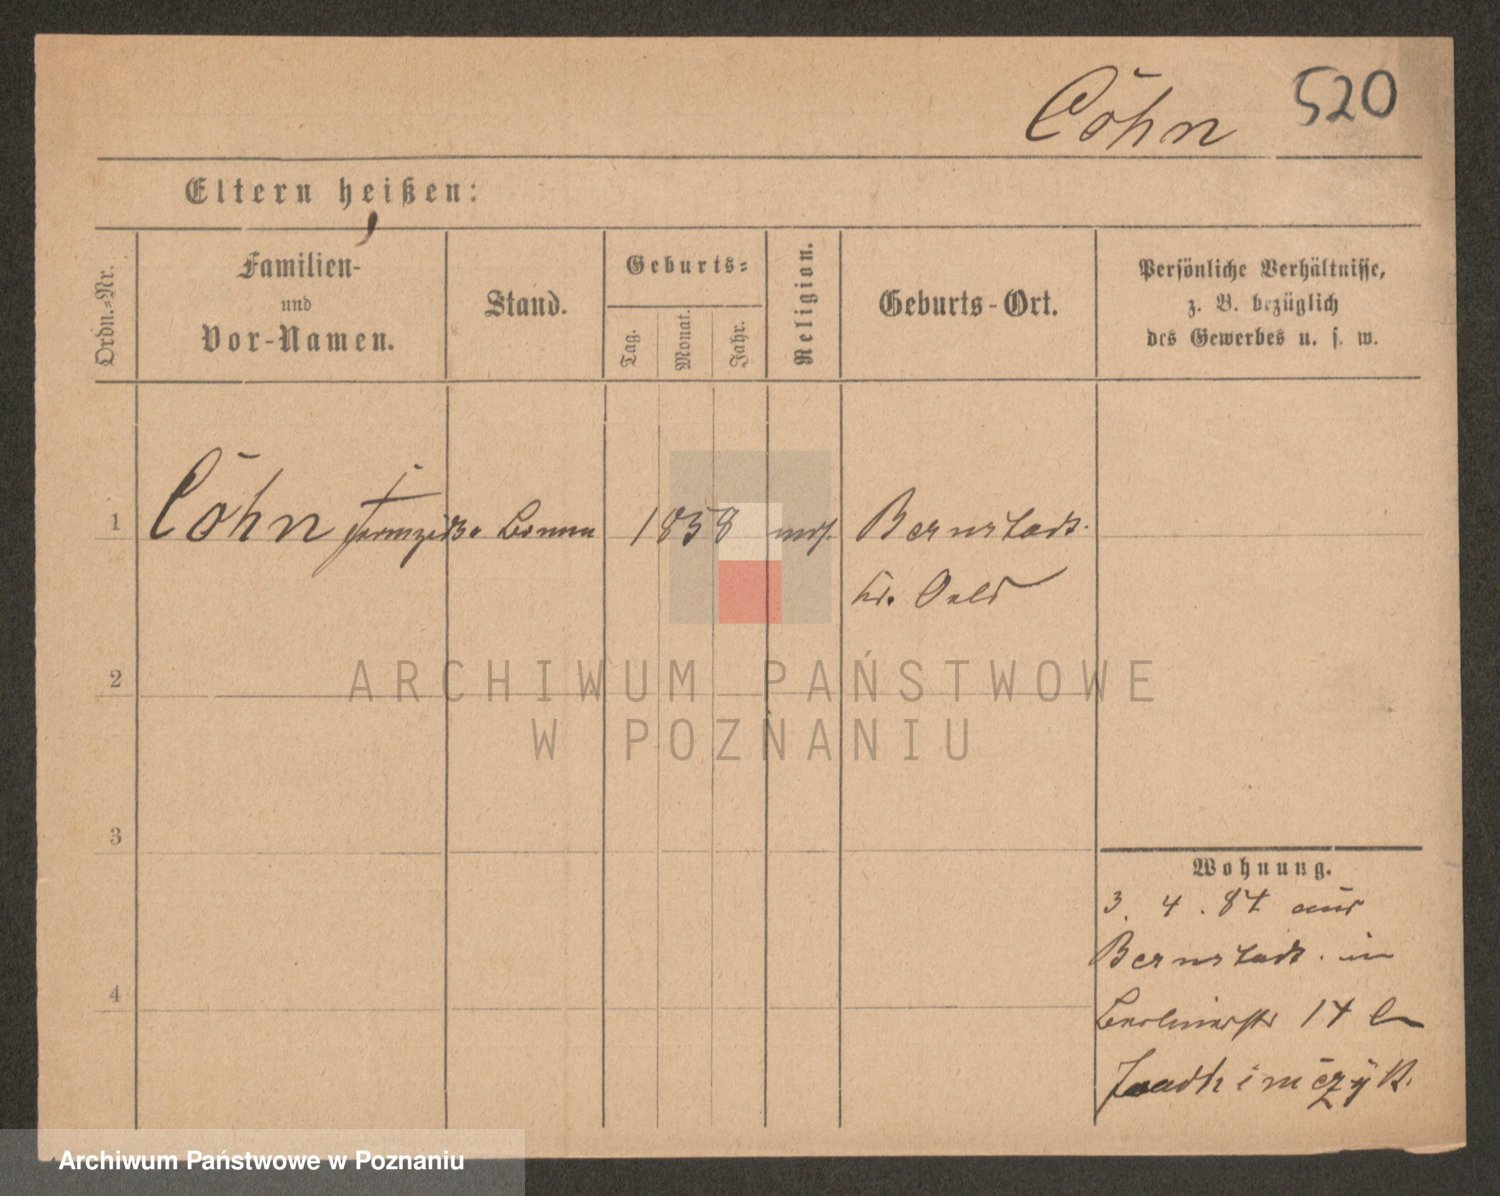 Cöhn 520
Eltern heißen:
Ordn.-Nr.
Familien-
und
Vor-Namen.
Stand.
Geburts-
Tag.
Monat.
Jahr.
Religion.
Geburts-Ort.
Persönliche Verhältnisse,
z. B. bezüglich
des Gewerbes u. s. w.
1 Cöhn 1858 mos. Bernstadt
Kr. Oels
2
ARCHIWUM PAŃSTWOWE
W POZNANIU
3
Wohnung.
3. 4. 87 aus
Bernstadt in
4
Berlinerstr 17 b
Archiwum Państwowe w Poznaniu